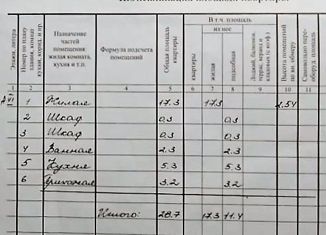 Этаж, литера
Номер по плану
Назначение частей помещения: жилая комната, кухня и т.п.
Формула подсчета помещений
Общая площадь квартиры
В т.ч. площадь
из нее
квартиры
жилая
подсобная
Высота помещений по вн. обмеру
1 2 3 4 5 6 7 8 9 10 11
1 Жилая 17.3 17.3 2.54
2 Шкаф 0.3 0.3
3 Шкаф 0.3 0.3
4 Ванная 2.3 2.3
5 Кухня 5.3 5.3
6 Прихожая 3.2 3.2
Итого: 28.7 17.3 11.4